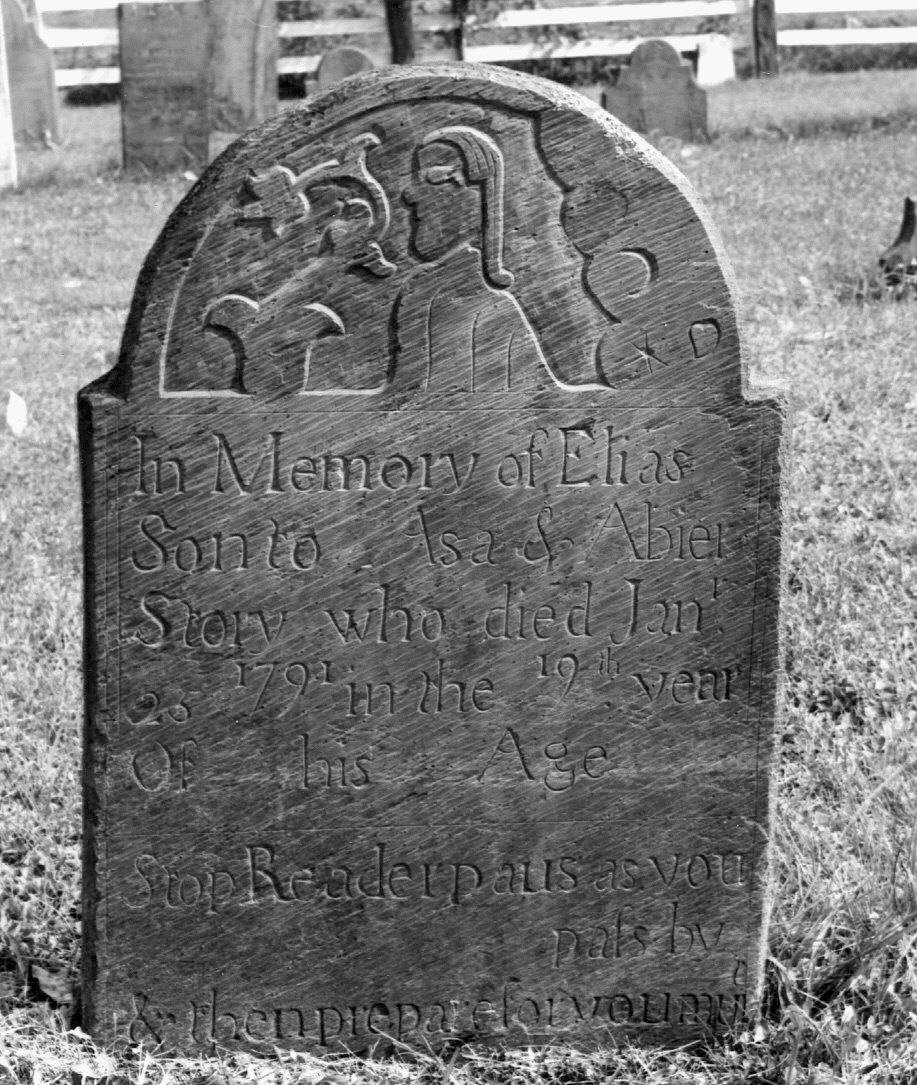 In Memory of Elias
Son to Asa & Abier
Story who died Jan.r
25 1791 in the 19th year
Of his Age
Stop Reader paus as you
paſs by
& then prepare for you